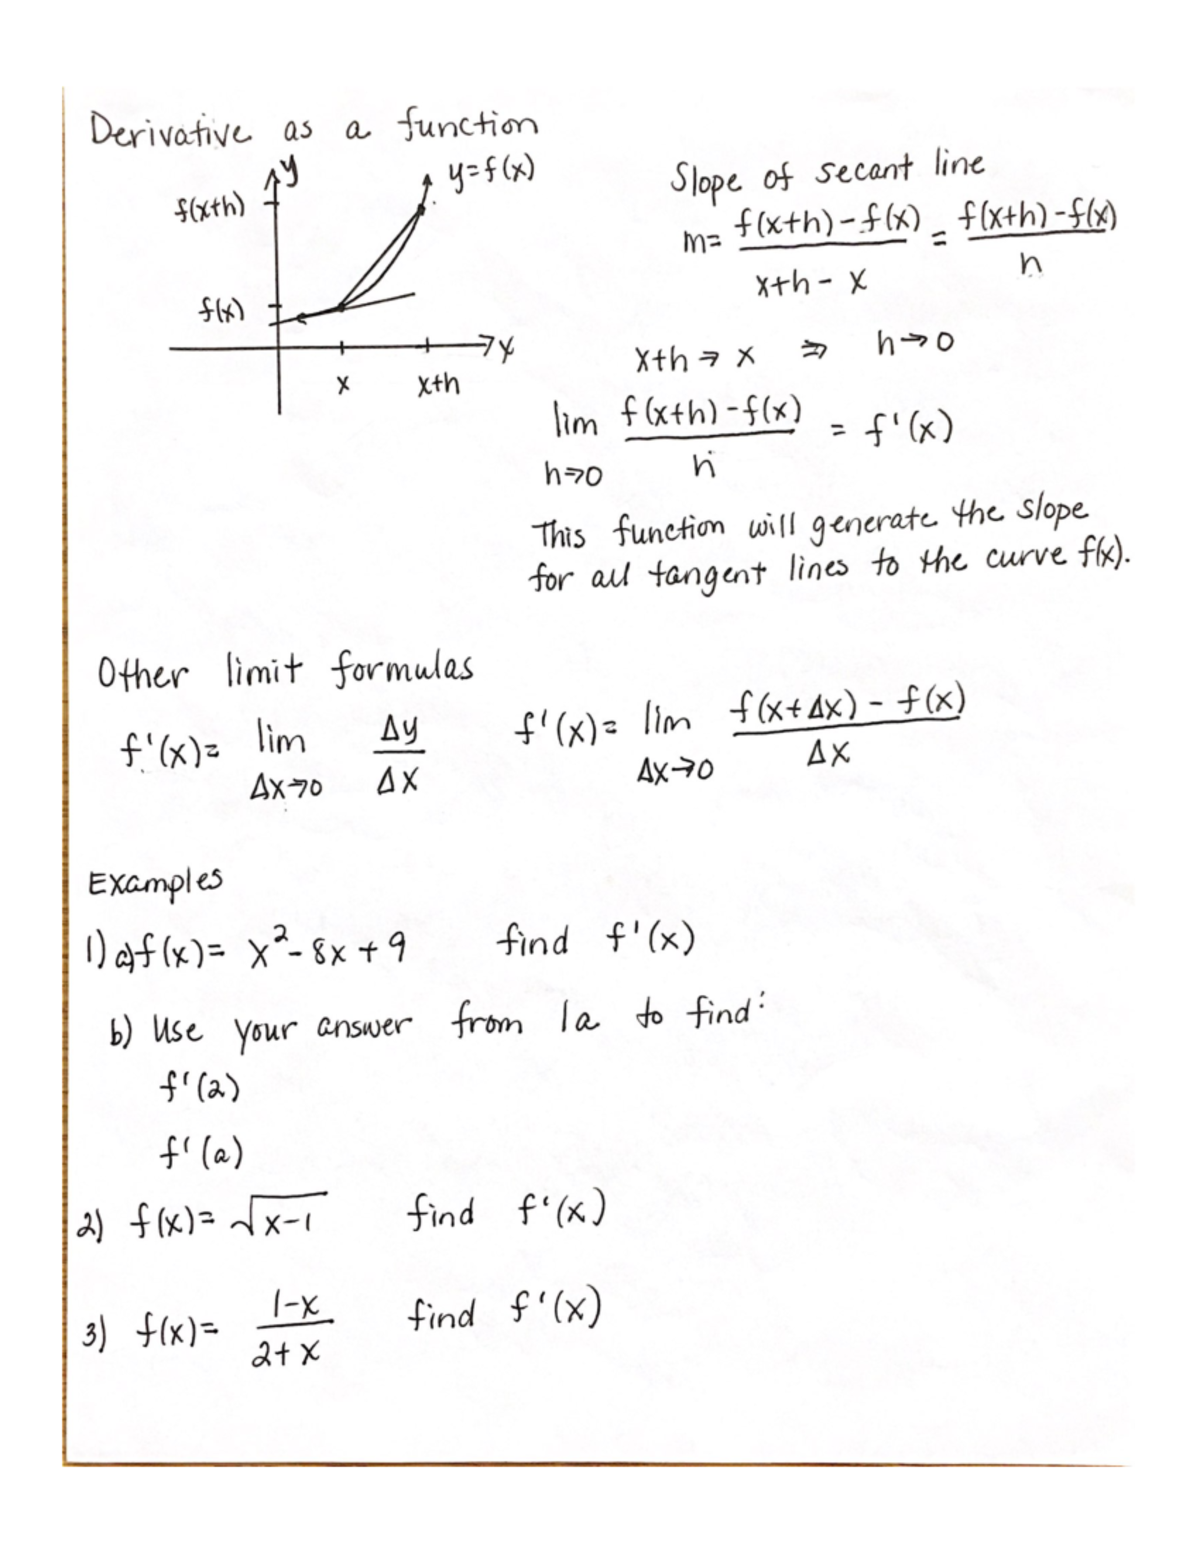 Derivative as a function
y
y=f(x)
f(x+h)
f(x)
x
x
x+h
Slope of secant line
m= f(x+h)-f(x) / x+h-x = f(x+h)-f(x) / h
x+h → x ⇒ h→0
lim h→0 f(x+h)-f(x) / h = f'(x)
This function will generate the slope
for all tangent lines to the curve f(x).
Other limit formulas
f'(x)= lim Δx→0 Δy / Δx
f'(x)= lim Δx→0 f(x+Δx) - f(x) / Δx
Examples
1) a) f(x)= x²-8x+9 find f'(x)
b) Use your answer from 1a to find:
f'(2)
f'(a)
2) f(x)= √x-1 find f'(x)
3) f(x)= 1-x / 2+x find f'(x)